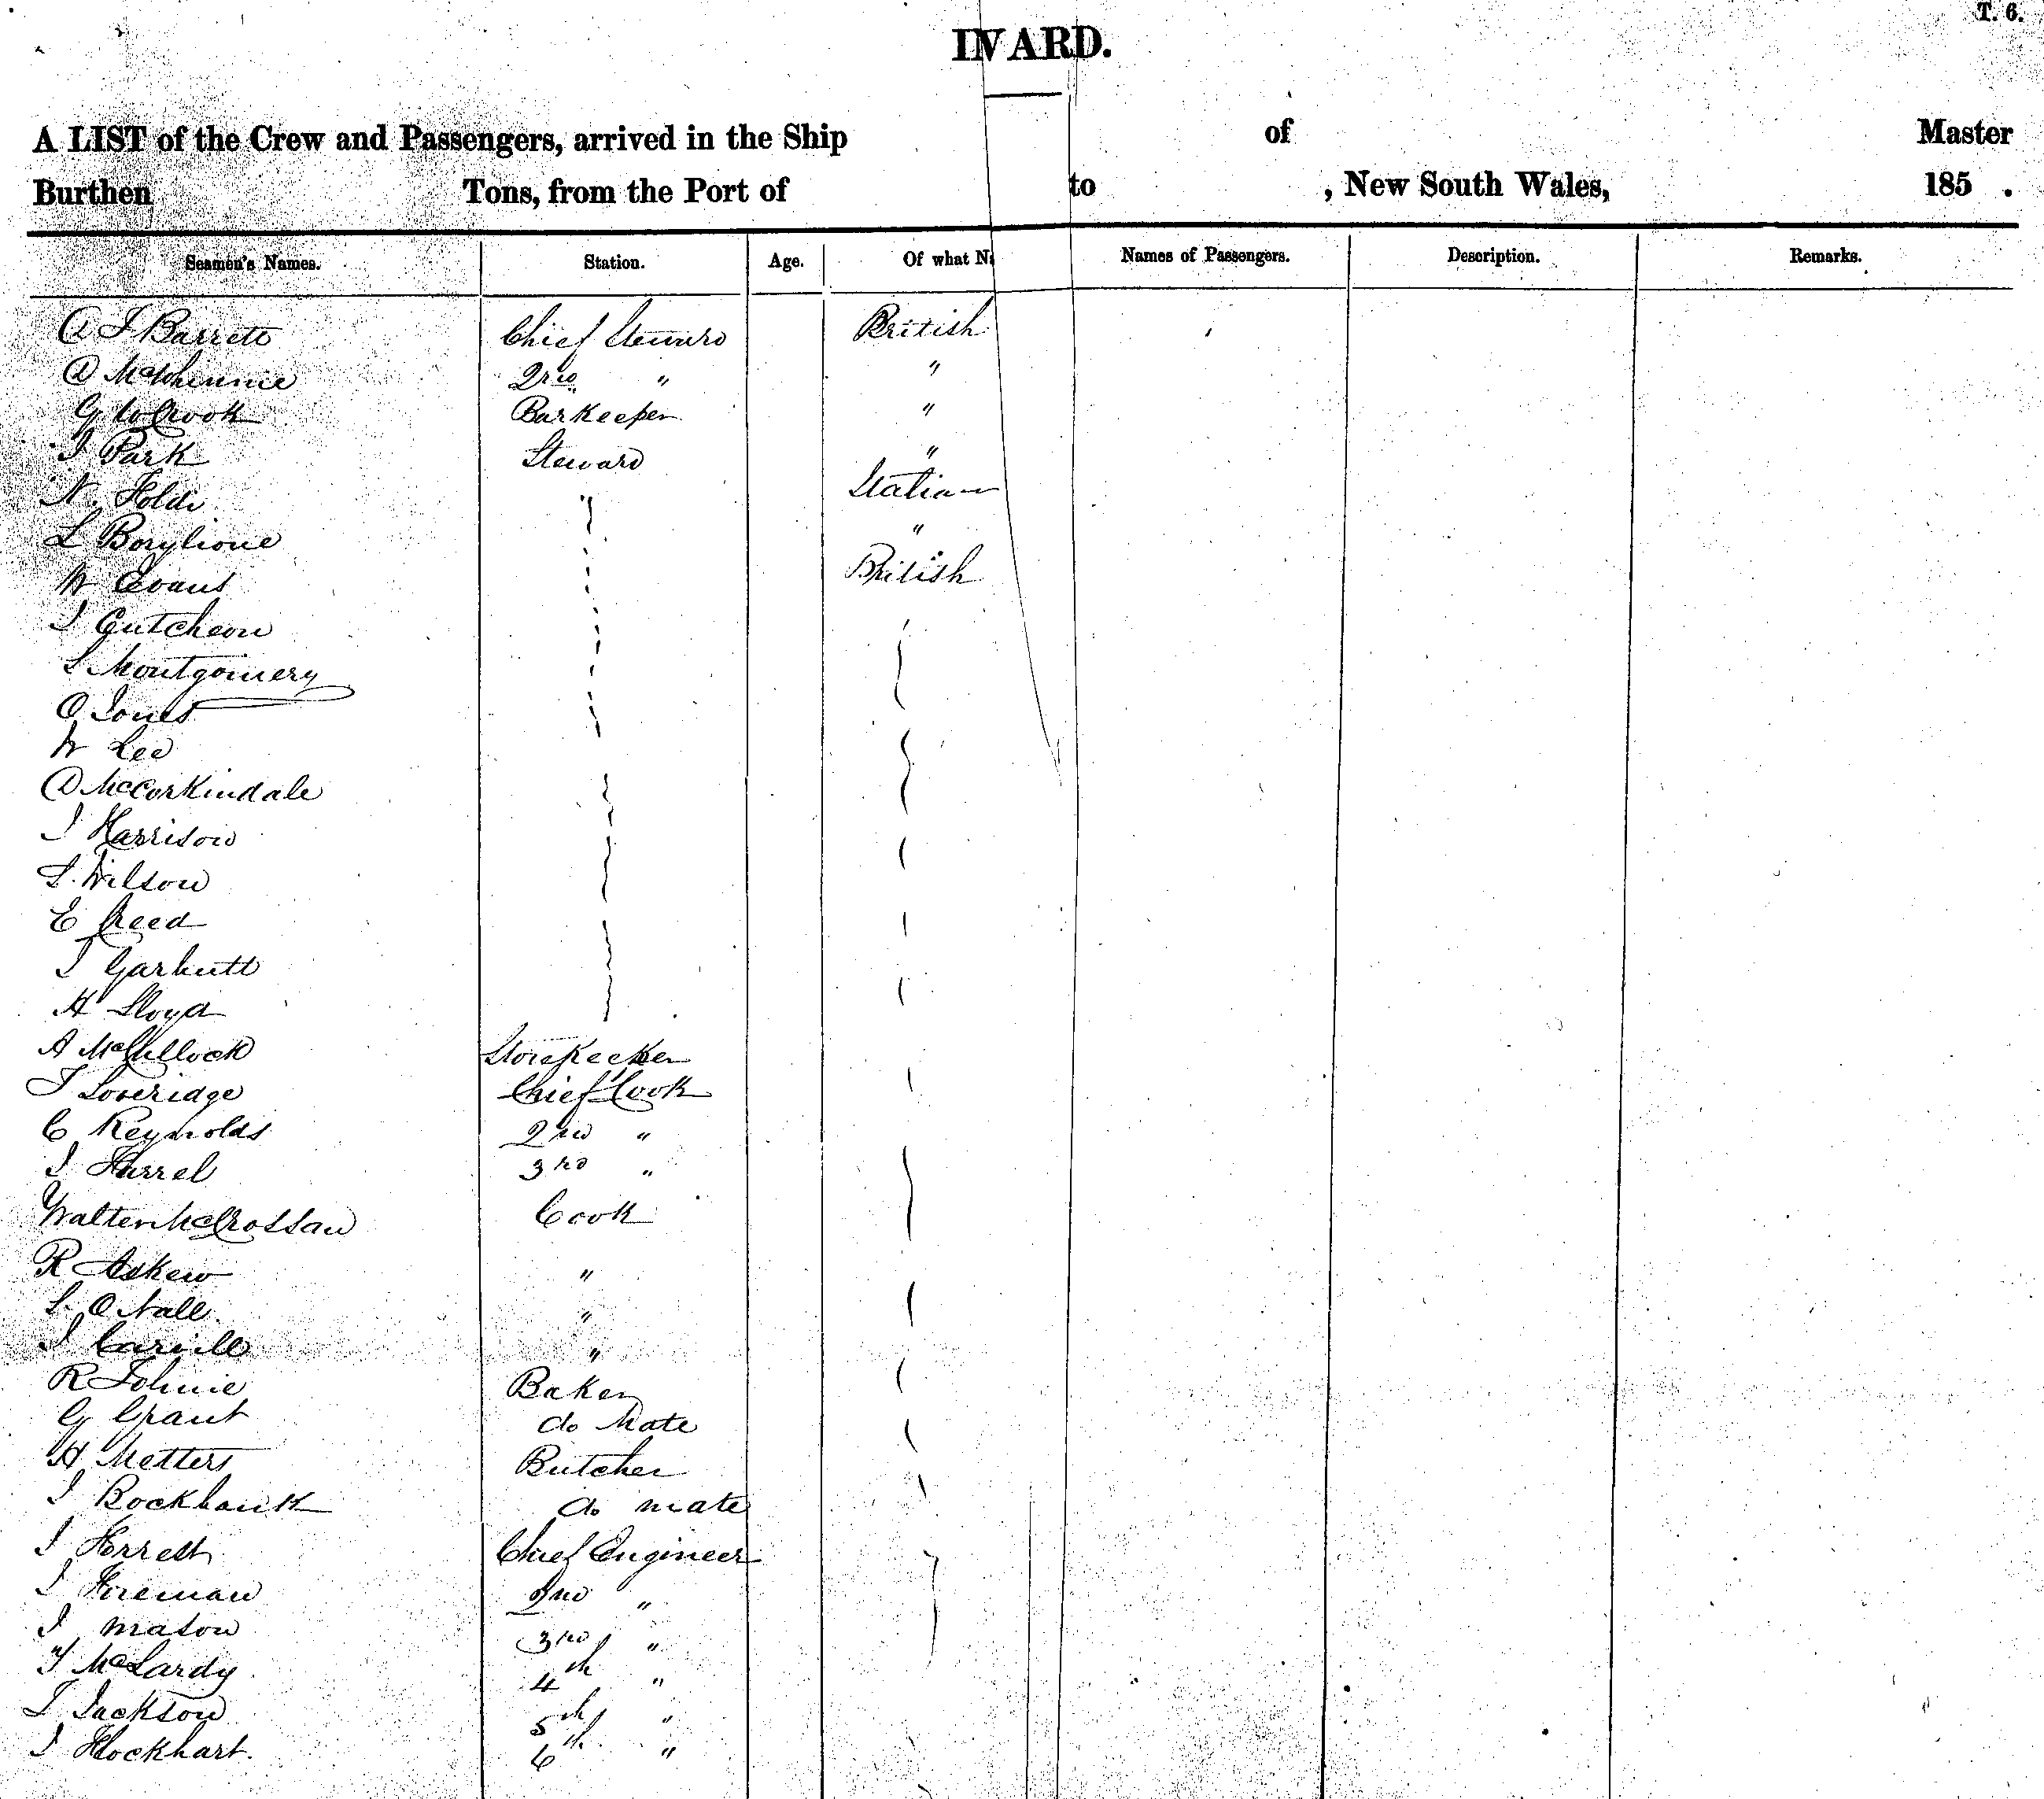 T. 6.
INWARD.
A LIST of the Crew and Passengers, arrived in the Ship of Master
Burthen Tons, from the Port of to , New South Wales, 185 .
Seamen's Names. Station. Age. Of what N Names of Passengers. Description. Remarks.
A J Barrett Chief Steward British
D McWhinnie 2nd " "
G W Crook Barkeeper "
J Park Steward "
N. Foldi Italian
L "
W Evans British
J Cutcheon
S Montgomery
O Jones
W Lee
D McCorkindale
J Harrison
S. Wilson
E Creed
J Garbutt
H Lloyd
A McCullock Storekeeper
J Loveridge Chief Cook
C Reynolds 2nd "
J Farrel 3rd "
Walter McCrossan Cook
R Askew "
S. O Nall "
J Carvill "
R Baker
G Grant do Mate
H Metters Butcher
J Rockhawk do mate
J Forrest Chief Engineer
J Foreman 2nd "
J Mason 3rd "
McLardy 4th "
T Jackson 5th "
J Flockhart 6th "